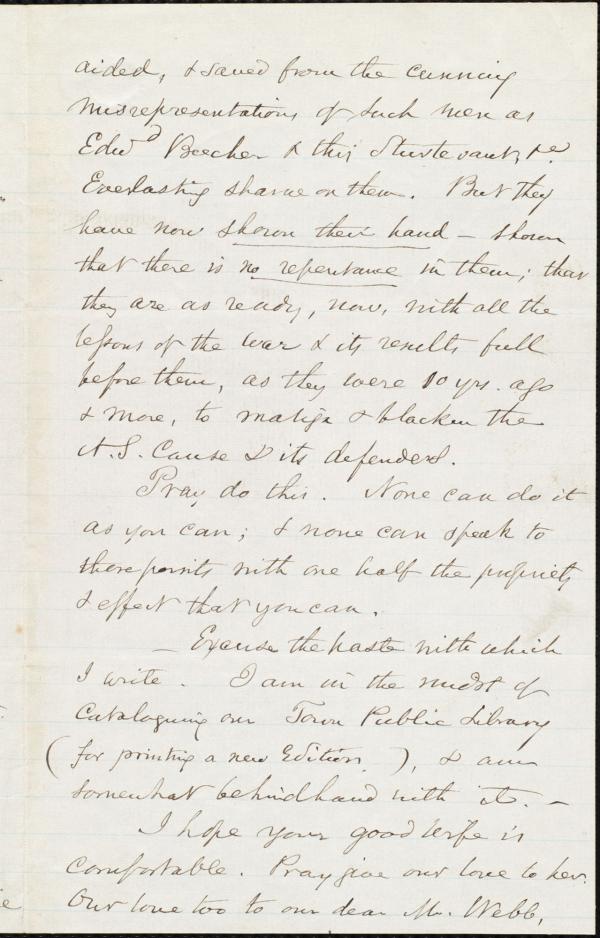 aided, & saved from the cunning
misrepresentations of such men as
Edwd Beecher & this Sturtevant, &c.
Everlasting shame on them. But they
have now shown their hand – shown
that there is no repentance in them; that
they are as ready, now, with all the
lessons of the war & its results full
before them, as they were 10 yrs. ago
& more, to malign & blacken the
A. S. Cause & its defenders.
Pray do this. None can do it
as you can; & none can speak to
those points with one half the propriety
& effect that you can.
– Excuse the haste with which
I write. I am in the midst of
Cataloguing our Town Public Library
(for printing a new Edition), & am
somewhat behindhand with it. –
I hope your good wife is
comfortable. Pray give our love to her.
Our love too to our dear Mr. Webb,